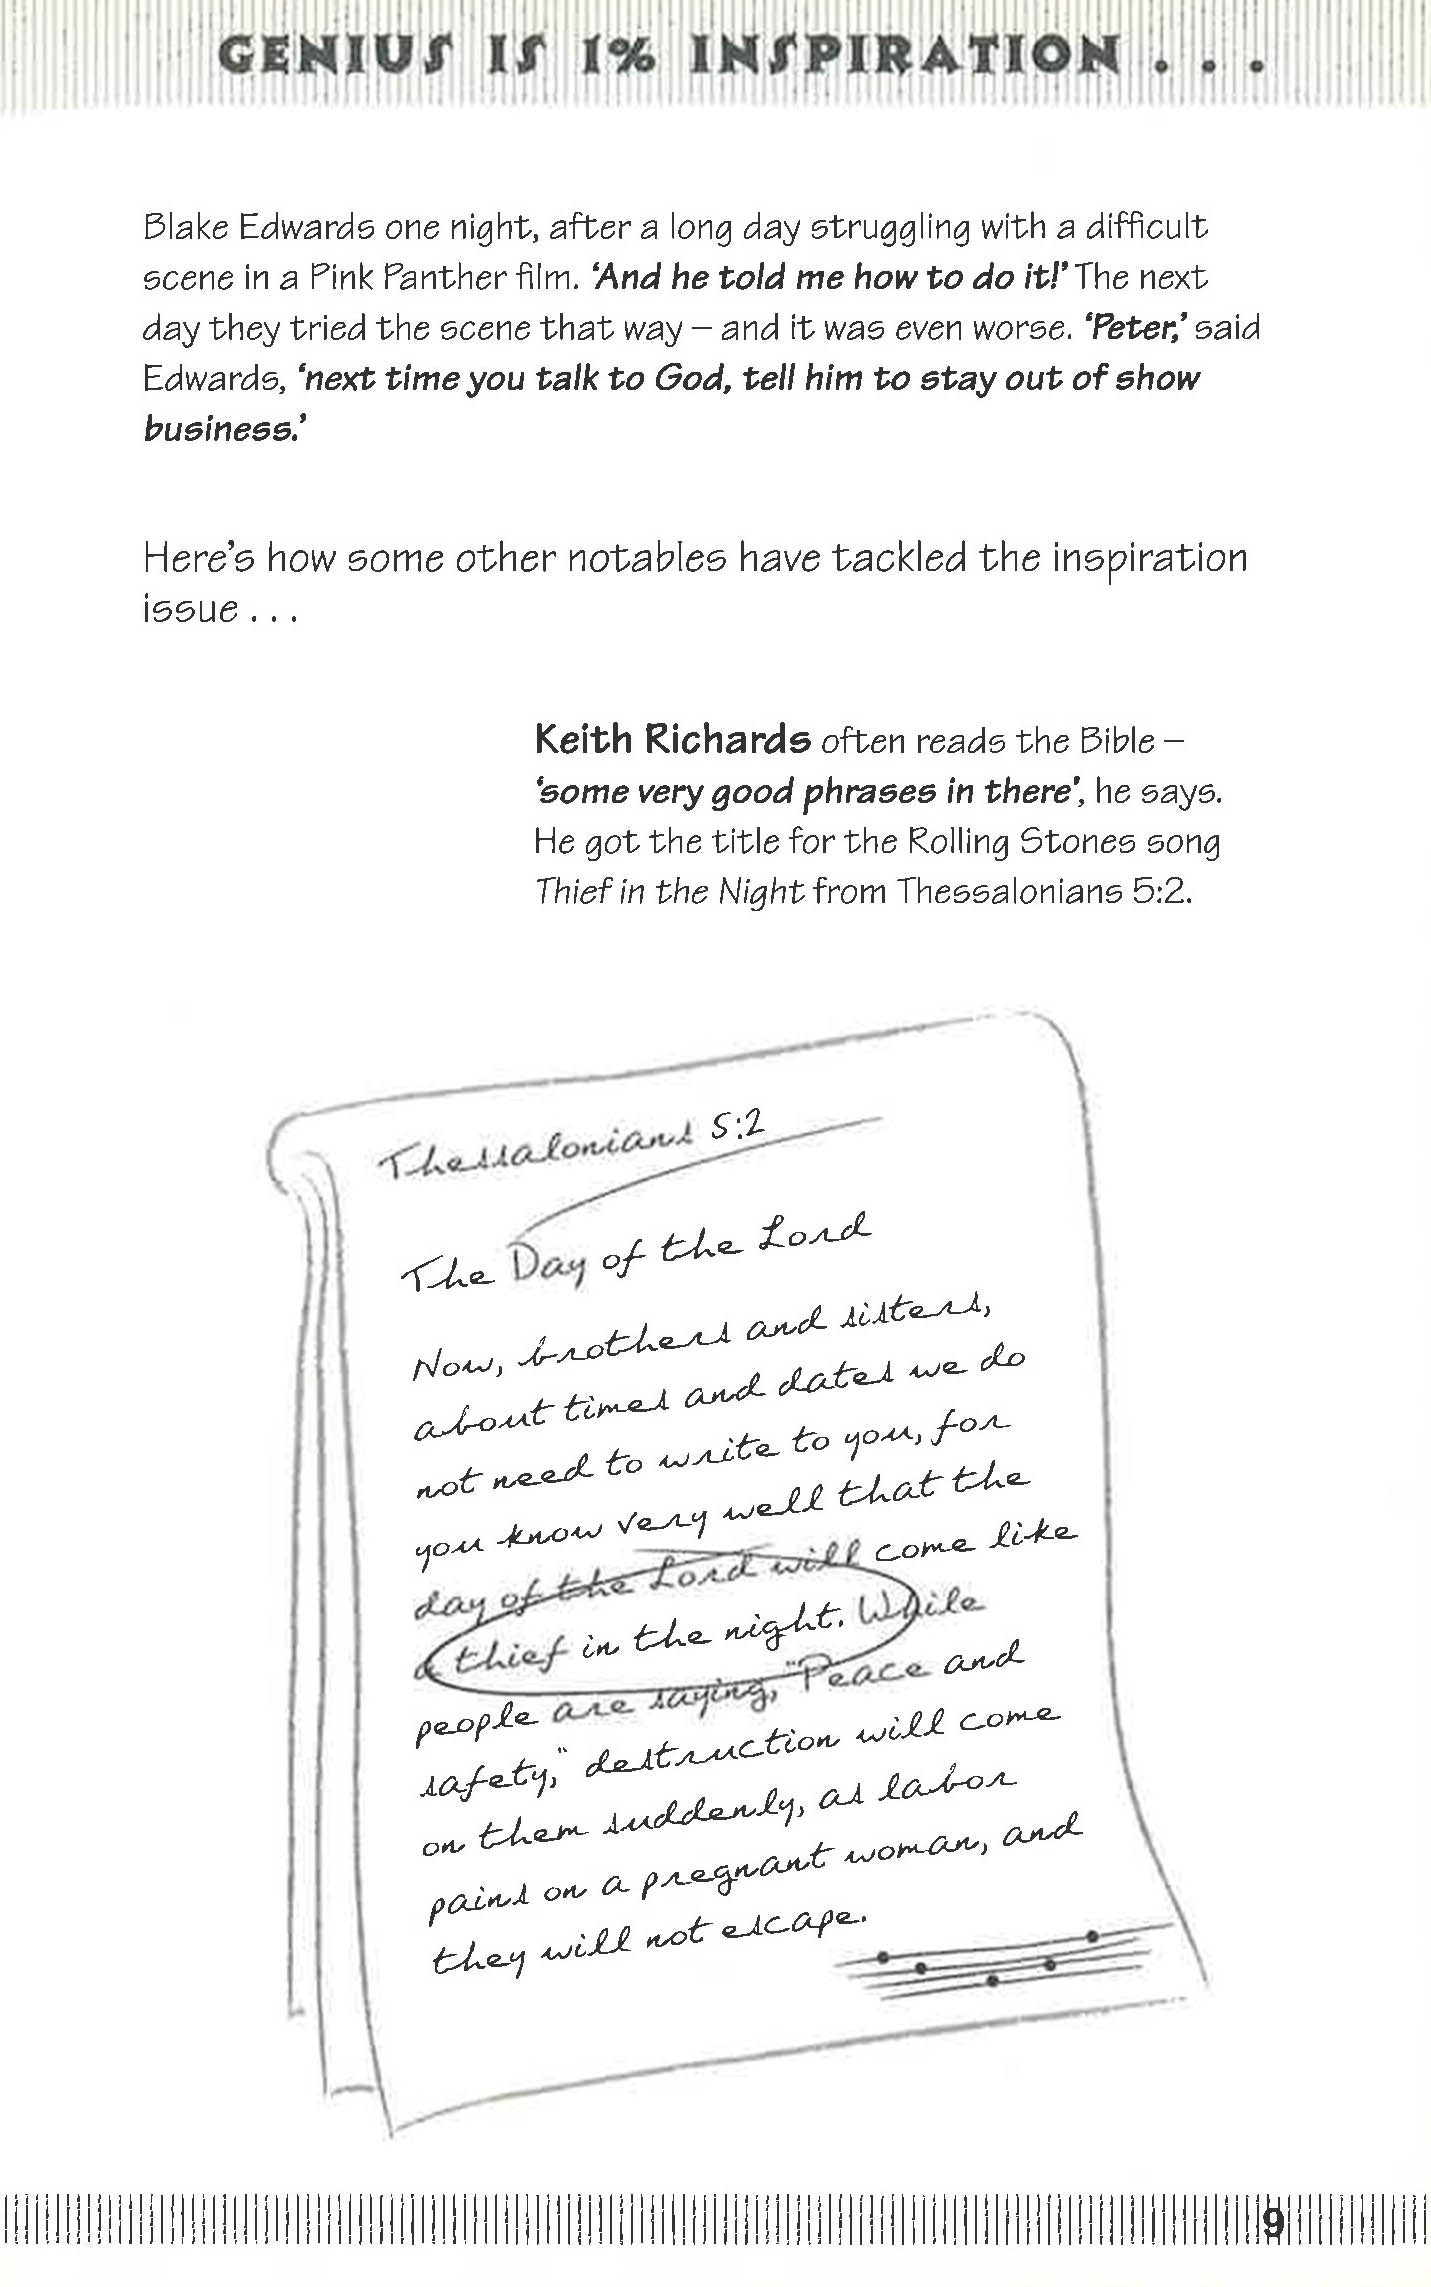 GENIUS IS 1% INSPIRATION . . .
Blake Edwards one night, after a long day struggling with a difficult
scene in a Pink Panther film. ‘And he told me how to do it!’ The next
day they tried the scene that way – and it was even worse. ‘Peter,’ said
Edwards, ‘next time you talk to God, tell him to stay out of show
business.’
Here’s how some other notables have tackled the inspiration
issue . . .
Keith Richards often reads the Bible –
‘some very good phrases in there’, he says.
He got the title for the Rolling Stones song
Thief in the Night from Thessalonians 5:2.
Thessalonians 5:2
The Day of the Lord
Now, brothers and sisters,
about times and dates we do
not need to write to you, for
you know very well that the
day of the Lord will come like
a thief in the night. While
people are saying, "Peace and
safety," destruction will come
on them suddenly, as labor
pains on a pregnant woman, and
they will not escape.
9